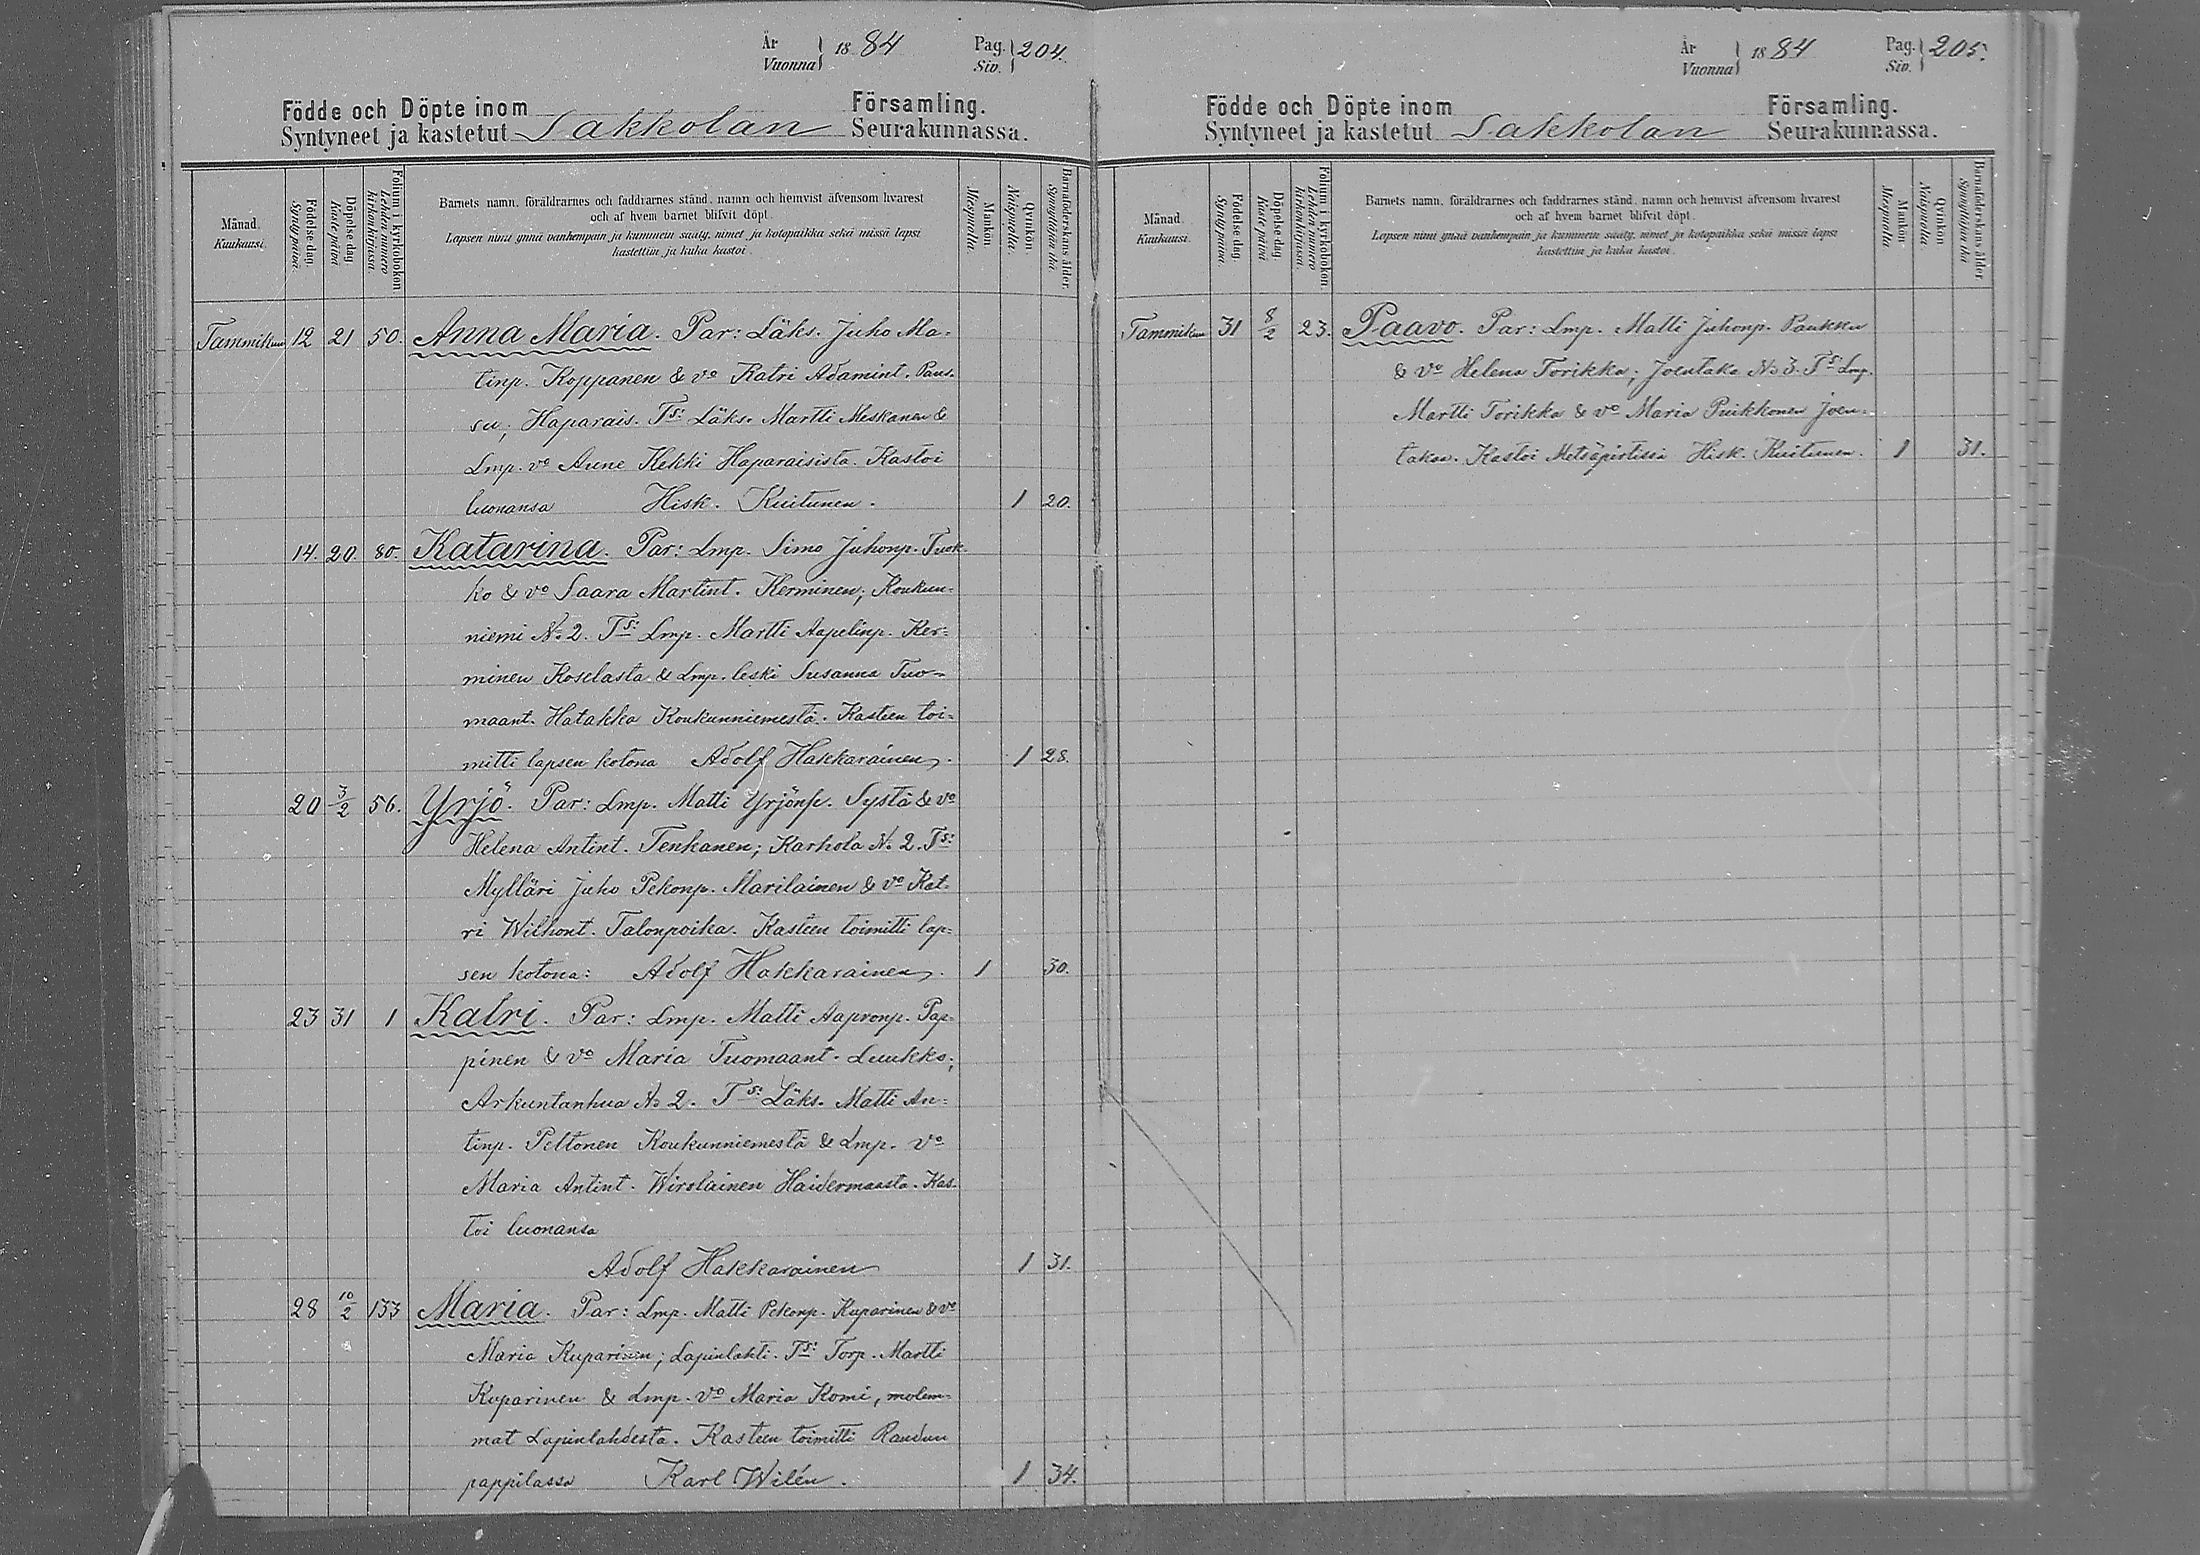 År
Vuonna } 1884
Pag.
Siv. } 204.
Födde och Döpte inom
Syntyneet ja kastetut Sakkolan
Församling.
Seurakunnassa.
Månad.
Kuukausi.
Födelse dag.
Synty päivä.
Döpelse dag
Kaste päivä
Folium i kyrkoboken.
Lehden numero
kirkonkirjassa.
Barnets namn, föräldrarnes och faddrarnes stånd, namn och hemvist äfvensom hvarest
och af hvem barnet blifvit döpt.
Lapsen nimi ynnä vanhempain ja kummein sääty, nimet ja kotopaikka sekä missä lapsi
kastettiin ja kuka kastoi.
Mankön
Miespuolta.
Qvinkön.
Naispuolta.
Barnaföderskans ålder
Synnyttäjän ikä
Tammikuu 12 21 50. Anna Maria. Par: Läks. Juho Ma-
tinp. Koppanen & vo Katri Adamint. Paus-
su; Haparais. Ts: Läks. Martti Meskanen &
Lmp. vo Anne Kekki Haparaisista. Kastoi
luonansa Hisk. Kuitunen. 1 20.
14. 20. 80. Katarina. Par: Lmp. Simo Juhonp. Tuok-
ko & vo Saara Martint. Kerminen; Koukun-
niemi No 2. Ts: Lmp. Martti Aapelinp. Ker-
minen Koselasta & Lmp. leski Susanna Tuo-
maant. Hatakka Koukunniemestä. Kasteen toi-
mitti lapsen kotona Adolf Hakkarainen. 1 28.
20 3/2 56. Yrjö. Par: Lmp. Matti Yrjönp. Systä & vo
Helena Antint. Tenkanen; Karhola No 2. Ts:
Mylläri Juho Pekonp. Marilainen & vo Kat-
ri Wilhont. Talonpoika. Kasteen toimitti lap-
sen kotona: Adolf Hakkarainen. 1 30.
23 31 1 Katri. Par: Lmp. Matti Aapronp. Pap-
pinen & vo Maria Tuomaant. Luukko;
Arkuntanhua No 2. Ts: Läks. Matti An-
tinp. Peltonen Koukunniemestä & Lmp. vo
Maria Antint. Wirolainen Haidermaasta. Kas-
toi luonansa
Adolf Hakkarainen 1 31.
28 10/2 133 Maria. Par: Lmp. Matti Pekonp. Kuparinen & vo
Maria Kuparinen; Lapinlahti. Ts: Torp. Martti
Kuparinen & Lmp. vo Maria Komi, molem-
mat Lapinlahdesta. Kasteen toimitti Raudun
pappilassa Karl Wilén. 1 34.
År
Vuonna } 1884
Pag.
Siv. } 205.
Födde och Döpte inom
Syntyneet ja kastetut Sakkolan
Församling.
Seurakunnassa.
Månad.
Kuukausi.
Födelse dag
Synty päivä.
Döpelse dag
Kaste päivä
Folium i kyrkoboken.
Lehden numero
kirkonkirjassa.
Barnets namn, föräldrarnes och faddrarnes stånd, namn och hemvist äfvensom hvarest
och af hvem barnet blifvit döpt.
Lapsen nimi ynnä vanhempain ja kummein sääty, nimet ja kotopaikka sekä missä lapsi
kastettiin ja kuka kastoi.
Mankön
Miespuolta
Qvinkön
Naispuolta.
Barnaföderskans ålder
Synnyttäjän ikä
Tammikuu 31 8/2 23. Paavo. Par: Lmp. Matti Juhonp. Paukku
& vo Helena Torikka; Joentaka No 3. Ts: Lmp.
Martti Torikka & vo Maria Puikkonen Joen-
takaa. Kastoi Metsäpirtissä Hisk. Kuitunen. 1 31.